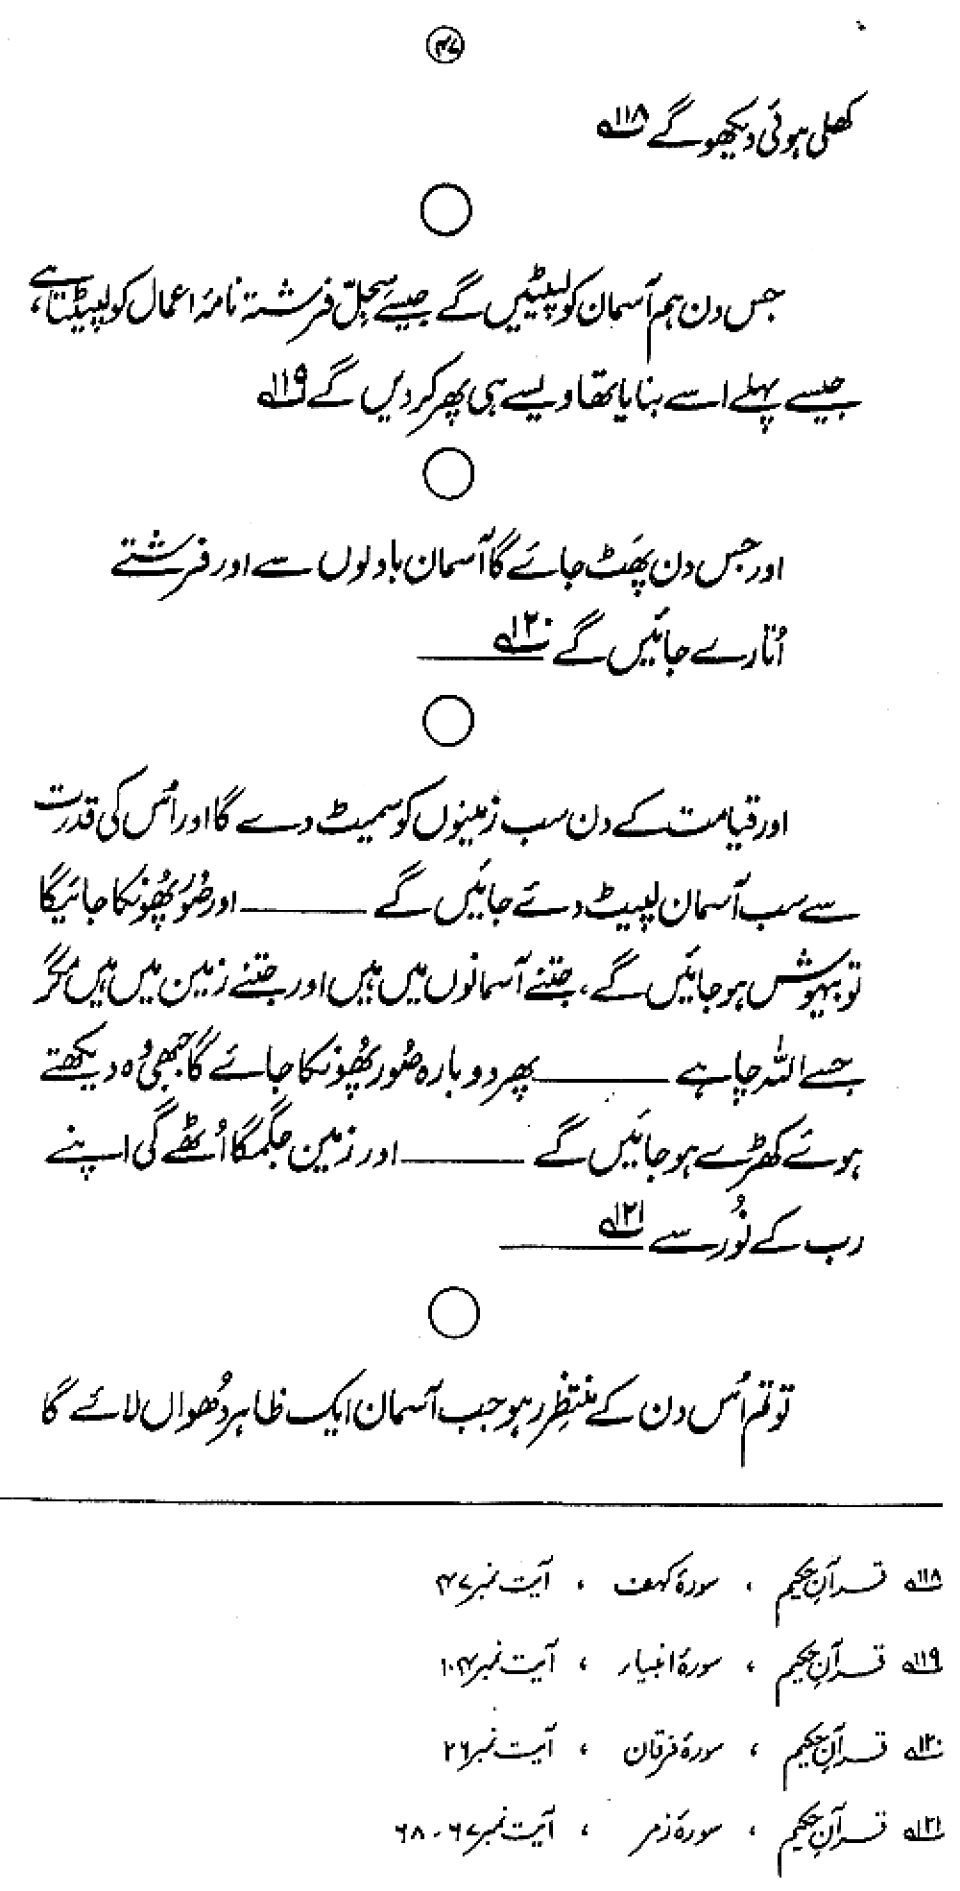 ۴۷
کھلی ہوئی دیکھو گے ۱۱۸؎
جس دن ہم آسمان کو لپیٹیں گے جیسے سِجِلّ فرشتہ نامۂ اعمال کو لپیٹتا ہے،
جیسے پہلے اسے بنایا تھا ویسے ہی پھر کر دیں گے ۱۱۹؎
اور جس دن پھَٹ جائے گا آسمان بادلوں سے اور فرشتے
اُتارے جائیں گے ۱۲۰؎ ـــــــ
اور قیامت کے دن سب زمینوں کو سمیٹ دے گا اور اُس کی قدرت
سے سب آسمان لپیٹ دئے جائیں گے ـــــــ اور صُور پُھونکا جائیگا
تو بیہوش ہو جائیں گے، جتنے آسمانوں میں ہیں اور جتنے زمین میں ہیں مگر
جسے اللہ چاہے ـــــــ پھر دوبارہ صُور پُھونکا جائے گا جبھی وُہ دیکھتے
ہوئے کھڑے ہو جائیں گے ـــــــ اور زمین جگمگا اُٹھے گی اپنے
رب کے نُور سے ۱۲۱؎ ـــــــ
تو تم اُس دن کے منتظِر رہو جب آسمان ایک ظاہر دُھواں لائے گا
۱۱۸؎ قرآنِ حکیم ، سورۂ کہف ، آیت نمبر ۴۷
۱۱۹؎ قرآنِ حکیم ، سورۂ انبیاء ، آیت نمبر ۱۰۴
۱۲۰؎ قرآنِ حکیم ، سورۂ فرقان ، آیت نمبر ۲۶
۱۲۱؎ قرآنِ حکیم ، سورۂ زمر ، آیت نمبر ۶۷-۶۸